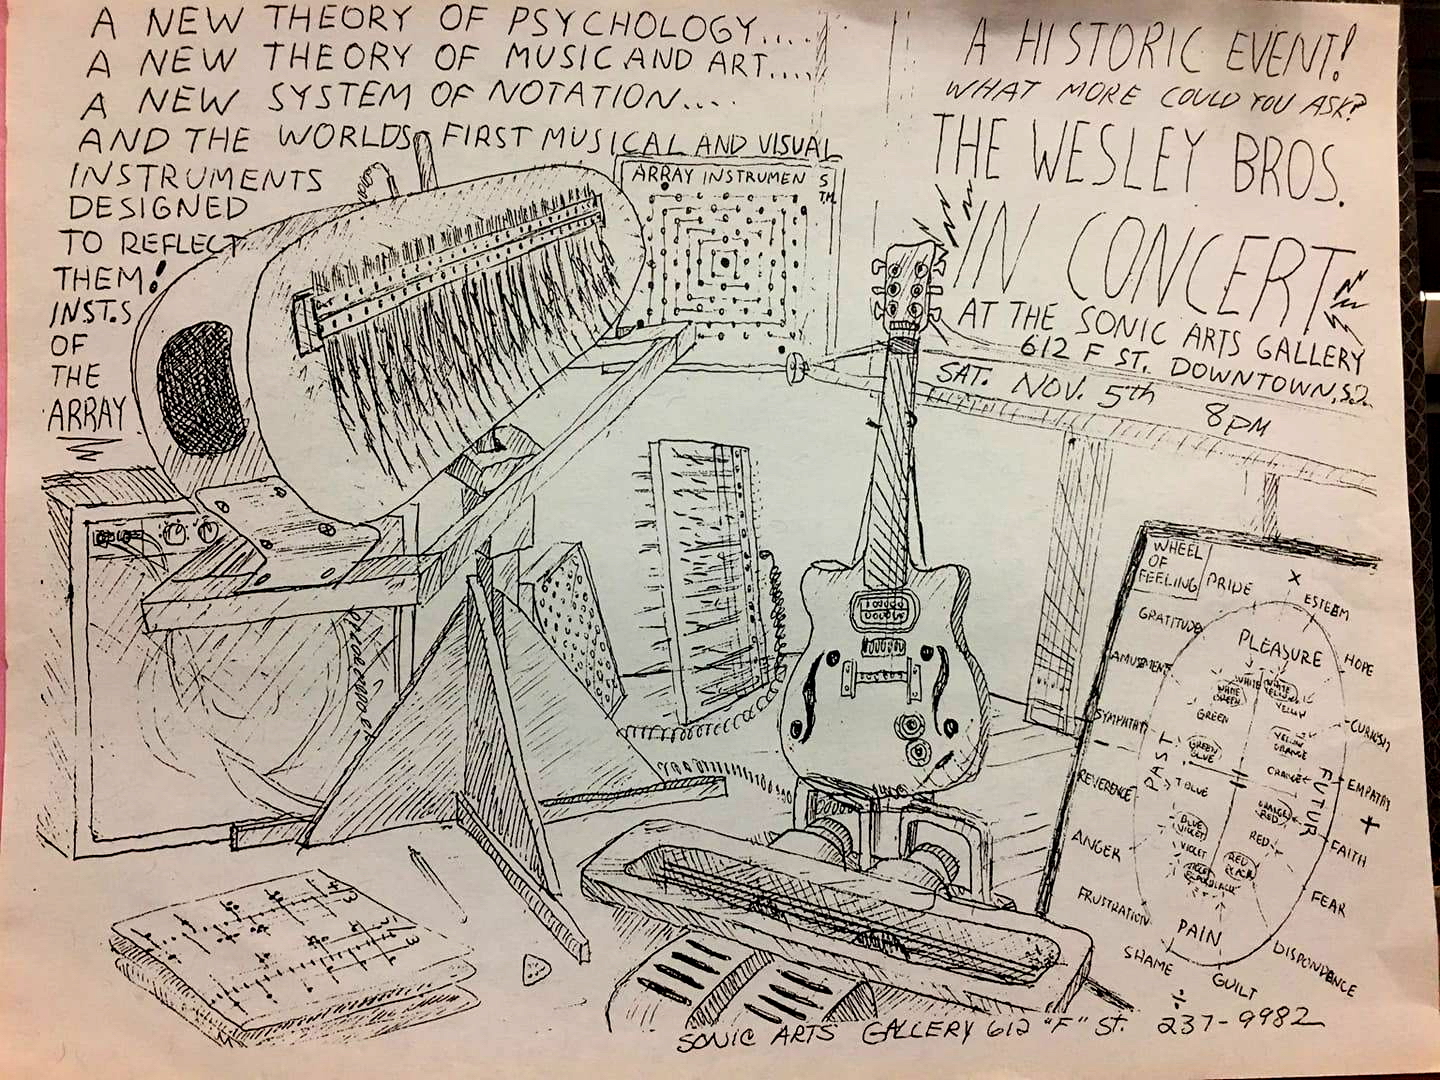 A NEW THEORY OF PSYCHOLOGY....
A NEW THEORY OF MUSIC AND ART....
A NEW SYSTEM OF NOTATION....
AND THE WORLDS FIRST MUSICAL AND VISUAL
INSTRUMENTS
DESIGNED
TO REFLECT
THEM!
INST.S
OF
THE
ARRAY
ARRAY INSTRUMEN S
A HISTORIC EVENT!
WHAT MORE COULD YOU ASK?
THE WESLEY BROS.
IN CONCERT
AT THE SONIC ARTS GALLERY
612 F ST. DOWNTOWN, S.D.
SAT. NOV. 5th 8PM
WHEEL
OF
FEELING
PRIDE
X
ESTEEM
GRATITUDE
PLEASURE
HOPE
AMUSEMENT
WHITE
WHITE
GREEN
WHITE
YELLOW
YELLOW
GREEN
SYMPATHY
-
PAST
GREEN
BLUE
YELLOW
ORANGE
ORANGE
FUTUR
EMPATHY
+
REVERENCE
BLUE
ORANGE
RED
BLUE
VIOLET
RED
FAITH
ANGER
VIOLET
RED
BLACK
BLACK
FEAR
FRUSTRATION
PAIN
SHAME
GUILT
DISPONDENCE
÷
SONIC ARTS GALLERY 612 "F" ST. 237-9982